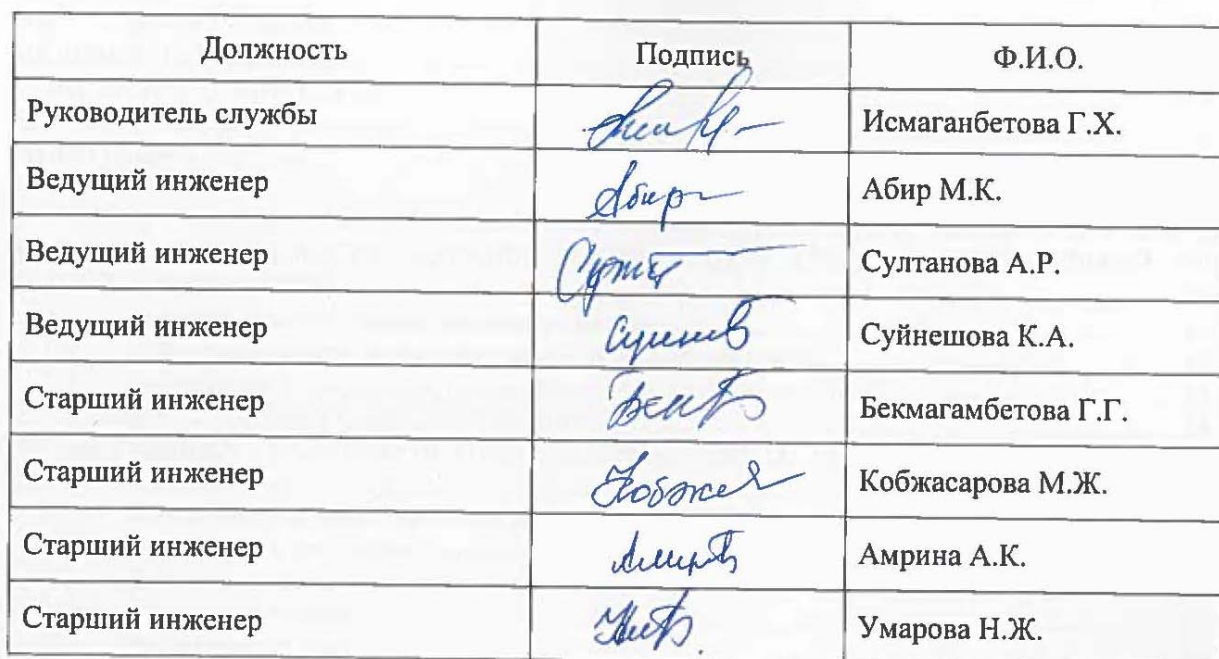 Должность Подпись Ф.И.О.
Руководитель службы Исмаганбетова Г.Х.
Ведущий инженер Абир М.К.
Ведущий инженер Султанова А.Р.
Ведущий инженер Суйнешова К.А.
Старший инженер Бекмагамбетова Г.Г.
Старший инженер Кобжасарова М.Ж.
Старший инженер Амрина А.К.
Старший инженер Умарова Н.Ж.